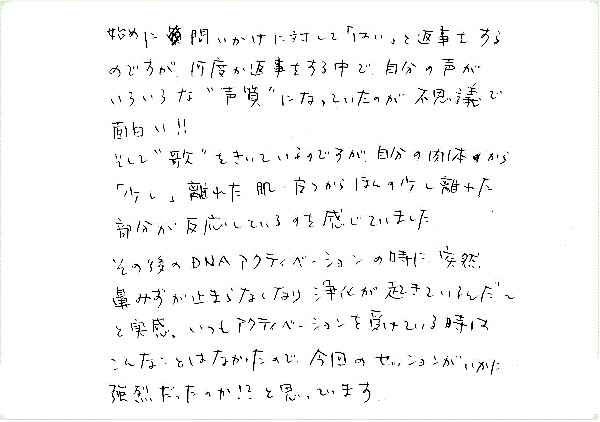 始めに質問いかけに対して「はい」と返事をする
のですが、何度か返事をする中で、自分の声が
いろいろな"声質"になっていたのが不思議で
面白い!!
そして"歌"をきいているのですが、自分の肉体から
「少し」離れた肌・皮フからほんの少し離れた
部分が反応しているのを感じていました。
その後のDNAアクティベーションの時に、突然
鼻みずが止まらなくなり浄化が起きているんだ〜
と実感。いつもアクティベーションを受けている時は
こんなことはなかったので、今回のセッションがいかに
強烈だったのか!?と思っています。